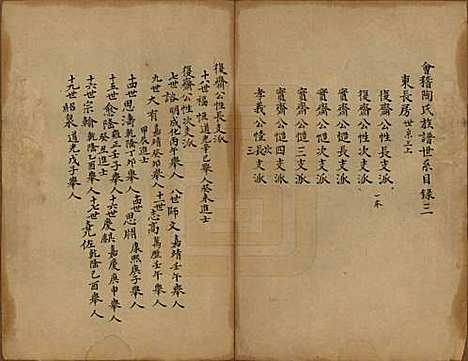 會稽陶氏族譜世系目錄三
東長房世系三上
復齋公性長支派
復齋公性次支派
實齋公愷長支派
實齋公愷次支派
實齋公愷三支派
實齋公愷四支派
孝義公懌長支派
復齋公性長支派
十八世 福恒 道光辛巳舉人 癸未進士
復齋公性次支派
七世 諮 明成化丙午舉人 八世 師文 嘉靖壬午舉人
九世 大有 嘉靖 甲辰進士 十一世 志高 萬曆壬午舉人
十四世 思濤 乾隆丁卯舉人 十四世 思淵 康熙庚子舉人
十五世 愈隆 雍正壬子舉人 十六世 慶麒 嘉慶庚申舉人
十六世 宗翰 乾隆己酉舉人 癸丑進士 十七世 堯佐 乾隆己酉舉人
十九世 昭製 道光戊子舉人